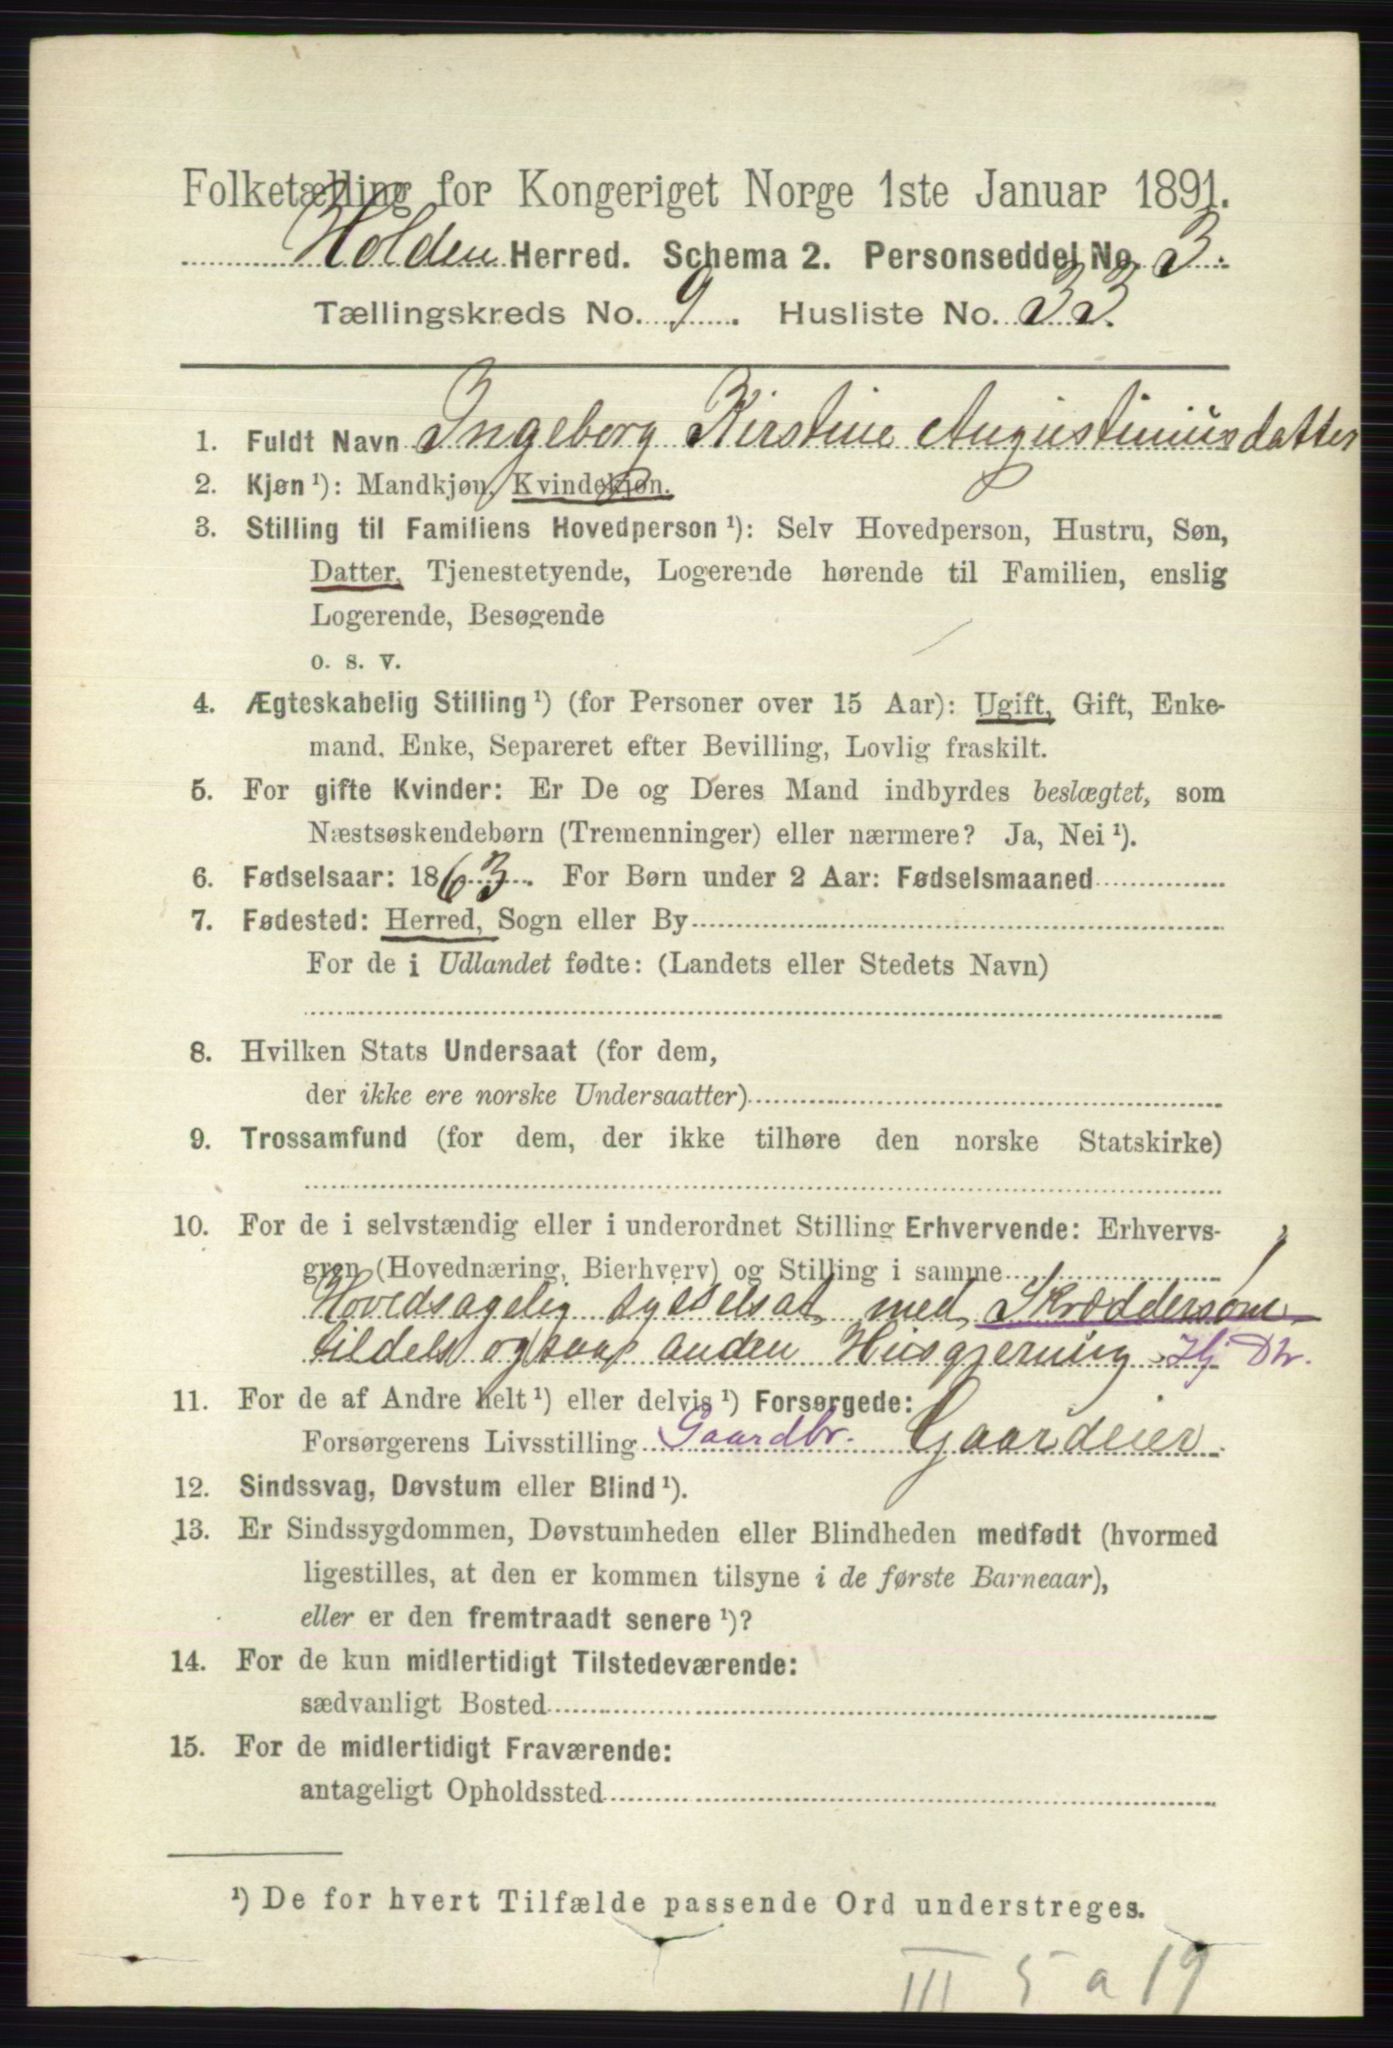 Folketælling for Kongeriget Norge 1ste Januar 1891.
Holden Herred. Schema 2. Personseddel No. 3.
Tællingskreds No. 9. Husliste No. 33.
1. Fuldt Navn Ingeborg Kirstine Augustiniusdatter
2. Kjøn¹): Mandkjøn, Kvindekjøn.
3. Stilling til Familiens Hovedperson¹): Selv Hovedperson, Hustru, Søn,
Datter, Tjenestetyende, Logerende hørende til Familien, enslig
Logerende, Besøgende
o. s. v.
4. Ægteskabelig Stilling¹) (for Personer over 15 Aar): Ugift, Gift, Enke-
mand, Enke, Separeret efter Bevilling, Lovlig fraskilt.
5. For gifte Kvinder: Er De og Deres Mand indbyrdes beslægtet, som
Næstsøskendebørn (Tremenninger) eller nærmere? Ja, Nei¹).
6. Fødselsaar: 1863. For Børn under 2 Aar: Fødselsmaaned
7. Fødested: Herred, Sogn eller By
For de i Udlandet fødte: (Landets eller Stedets Navn)
8. Hvilken Stats Undersaat (for dem,
der ikke ere norske Undersaatter)
9. Trossamfund (for dem, der ikke tilhøre den norske Statskirke)
10. For de i selvstændig eller i underordnet Stilling Erhvervende: Erhvervs-
gren (Hovednæring, Bierhverv) og Stilling i samme
Hovedsagelig sysselsat med Skræddersøm,
tildels ogsaa anden Husgjerning Hj Dtr.
11. For de af Andre helt¹) eller delvis¹) Forsørgede:
Forsørgerens Livsstilling Gaardbr. Gaardeier.
12. Sindssvag, Døvstum eller Blind¹).
13. Er Sindssygdommen, Døvstumheden eller Blindheden medfødt (hvormed
ligestilles, at den er kommen tilsyne i de første Barneaar),
eller er den fremtraadt senere¹)?
14. For de kun midlertidigt Tilstedeværende:
sædvanligt Bosted
15. For de midlertidigt Fraværende:
antageligt Opholdssted
¹) De for hvert Tilfælde passende Ord understreges.
III 5 a 19